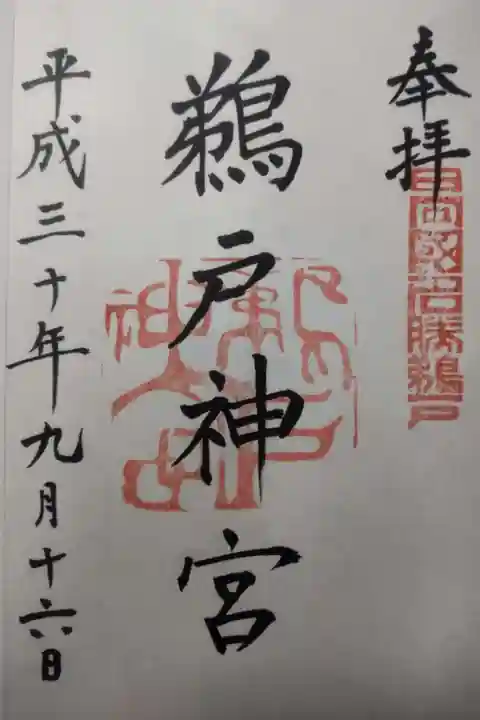 奉拝
日向国名勝鵜戸
鵜戸神宮
平成三十年九月十六日